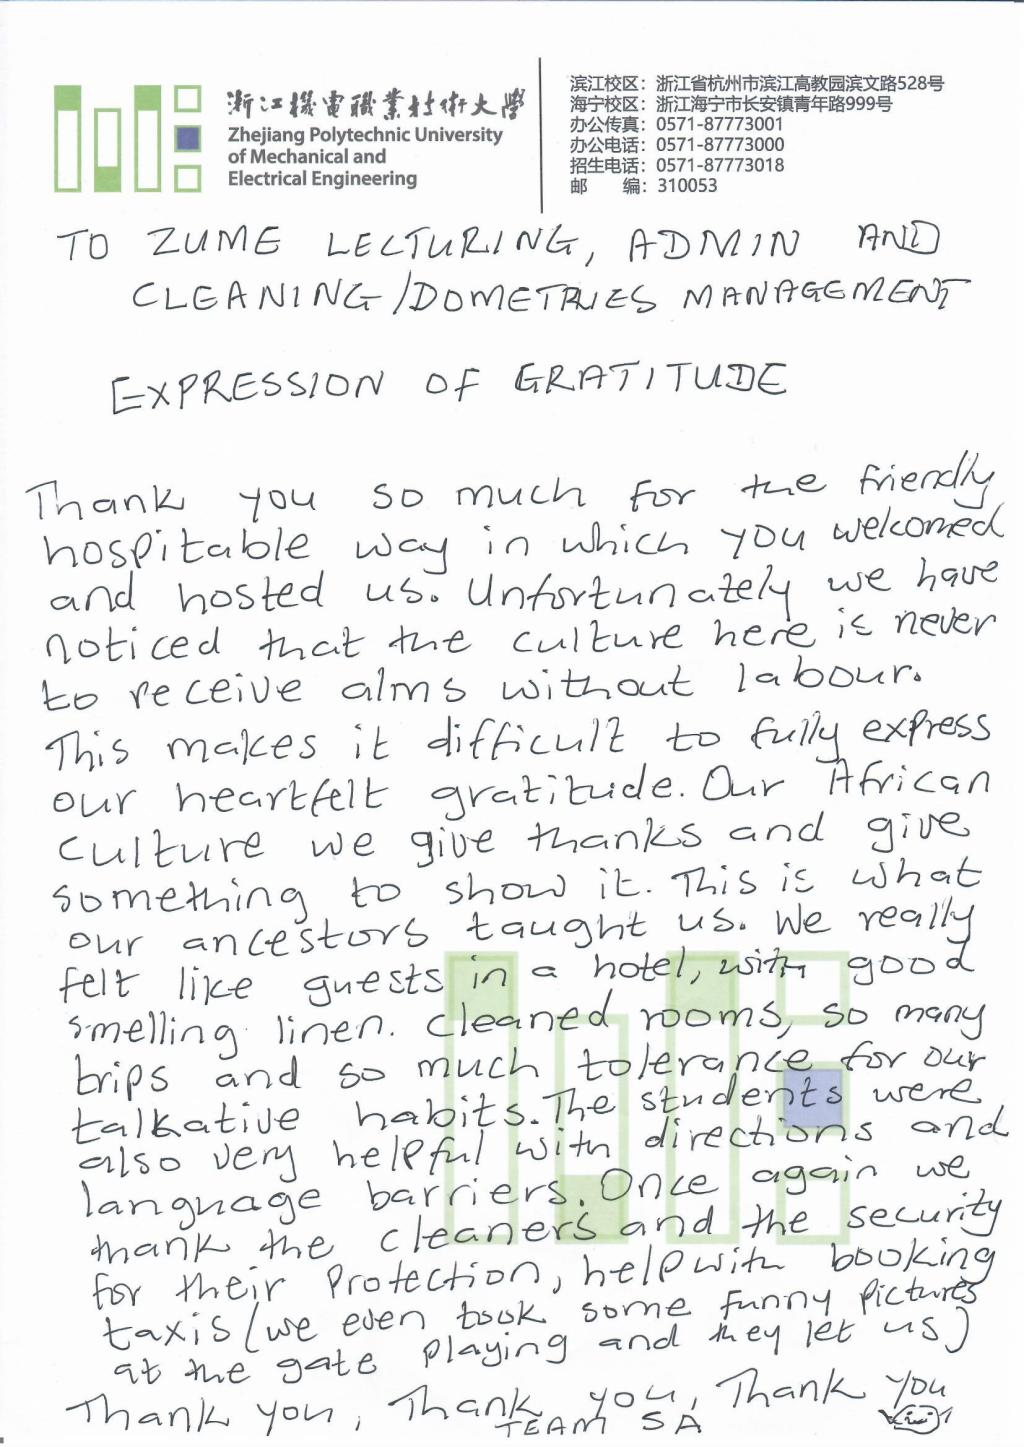 浙江機電職業技術大學
Zhejiang Polytechnic University
of Mechanical and
Electrical Engineering
滨江校区：浙江省杭州市滨江高教园滨文路528号
海宁校区：浙江海宁市长安镇青年路999号
办公传真：0571-87773001
办公电话：0571-87773000
招生电话：0571-87773018
邮 编：310053
TO ZUME LECTURING, ADMIN AND
CLEANING/DOMETRIES MANAGEMENT
EXPRESSION OF GRATITUDE
Thank you so much for the friendly
hospitable way in which you welcomed
and hosted us. Unfortunately we have
noticed that the culture here is never
to receive alms without labour.
This makes it difficult to fully express
our heartfelt gratitude. Our African
culture we give thanks and give
something to show it. This is what
our ancestors taught us. We really
felt like guests in a hotel, with good
smelling linen. cleaned rooms, so many
trips and so much tolerance for our
talkative habits. The students were
also very helpful with directions and
language barriers. Once again we
thank the cleaners and the security
for their Protection, help with booking
taxis (we even took some funny pictures
at the gate playing and they let us)
Thank you, Thank you, Thank you
TEAM SA